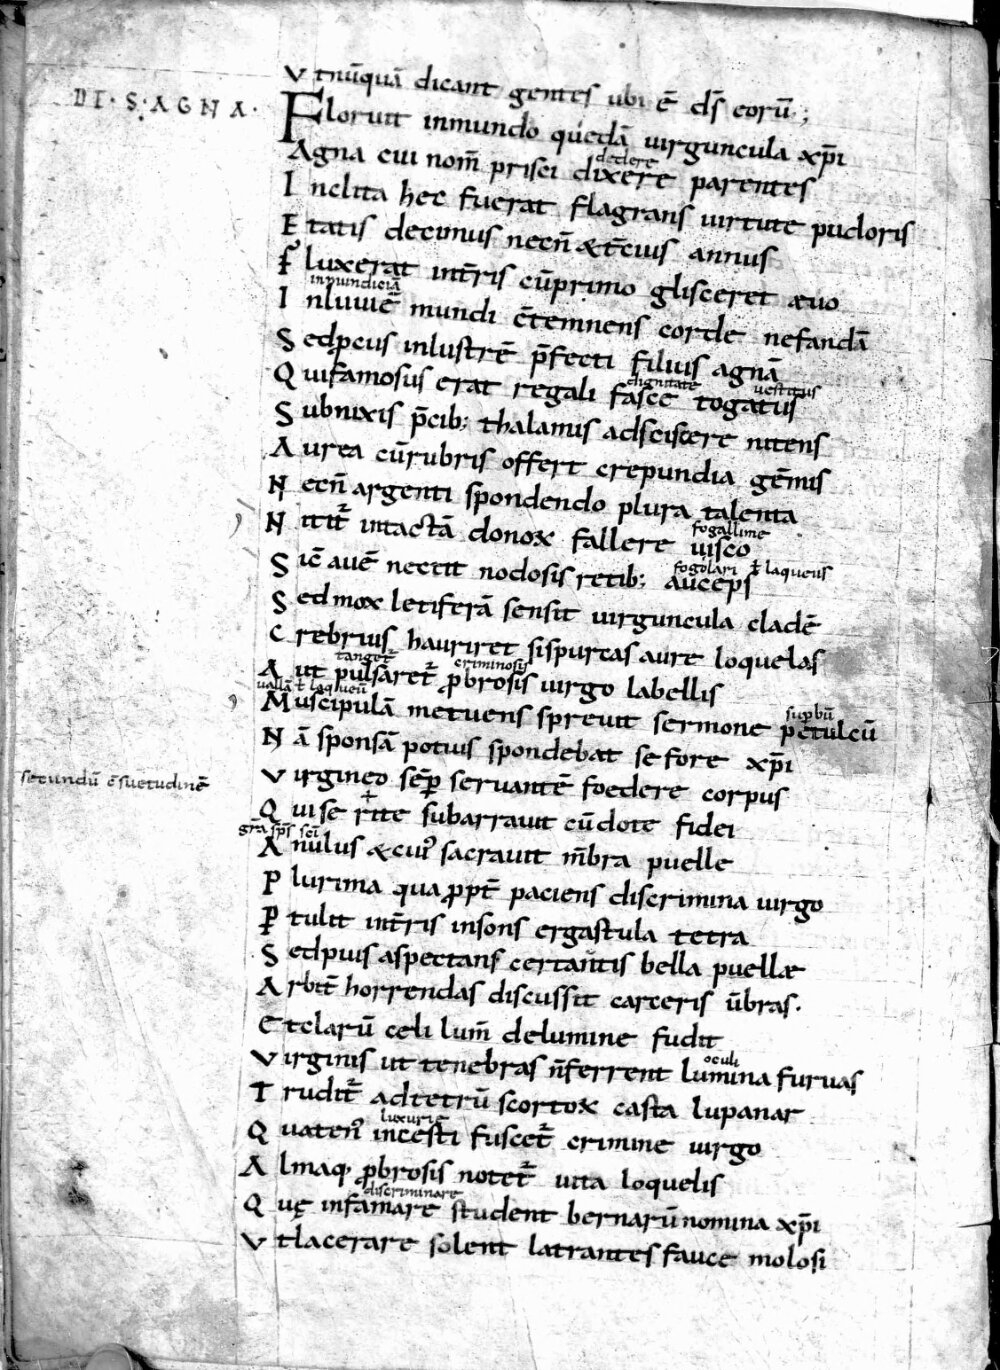 V tnūquā dicant gentes ubi ē d̄s eorū;
DE · S · AGNA ·
Floruit inmundo quedā uirguncula xp̄i
dedere
Agna cui nom̄ prisci dixere parentes
I nclita hec fuerat flagrans uirtute pudoris
E tatis decimus necn̄ & t̄cius annus
F luxerat int̄ris cūprimo glisceret æuo
inmundiciā
I nluuiē mundi c̄temnens corde nefandā
S edp̄cius inlustrē p̄fecti filius agnā
dignitate uestitus
Q uifamosus erat regali fasce togatus
S ubnixis p̄cib; thalamus adsciscere nitens
A urea cūrubris offert crepundia gēmis
N ecn̄ argenti spondendo plura talenta
N itit̄ intactā donoꝝ fallere uisco
fogallime
S ic̄ auē nectit nodosis retib; auceps
fogolari ł laqueus
S ed mox letiferā sensit uirguncula cladē
C rebrius hauriret sispurcas aure loquelas
tanget̄ criminosis
A ut pulsaret̄ ꝓbrosis uirgo labellis
uallā ł laqueū
M uscipulā metuens spreuit sermone petulcū
sup̱bū
N ā sponsā potius spondebat se fore xp̄i
V irgineo sēp̱ seruantē foedere corpus
secundū c̄suetudinē
Q uise rite subarrauit cūdote fidei
grā sp̄s sc̄i
A nulus & cui᾽ sacrauit m̄bra puelle
P lurima qua ꝓpt̄ paciens discrimina uirgo
P̱ tulit int̄ris insons ergastula tetra
S edpius aspectans certantis bella puellæ
A rbit̄ horrendas discussit carceris ūbras.
E tclarū celi lum̄ delumine fudit
oculi
V irginis ut tenebras n̄ferrent lumina furuas
T rudit̄ adtetrū scortoꝝ casta lupanar
luxurie
Q uaten᾽ incesti fuscet̄ crimine uirgo
A lmaq· ꝓbrosis notet̄ uita loquelis
discriminare
Q uę infamare student bernarū nomina xp̄i
V tlacerare solent latrantes fauce molosi